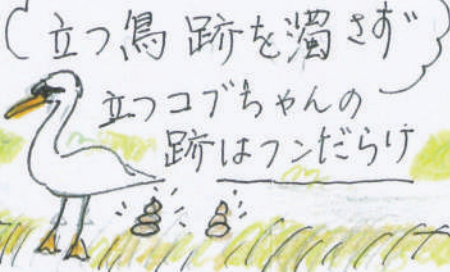 立つ鳥 跡を濁さず
立つコブちゃんの
跡はフンだらけ